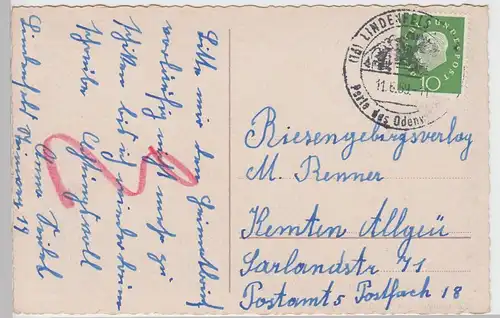 Bitte mir den Heimatbrief
vorläufig nicht mehr zu
schicken bis ich wieder
schreibe
Anna
Lindenfels
(16) LINDENFELS
11.6.60
Perle des Odenw
BUNDESPOST
10
Riesengebirgsverlag
M. Renner
Kemten Allgäü
Sarlandstr 71
Postamt 5 Postfach 18